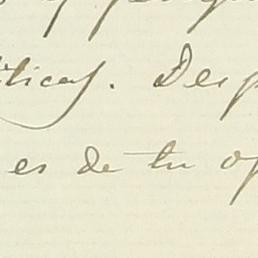 íticas. Desp
es de tu op